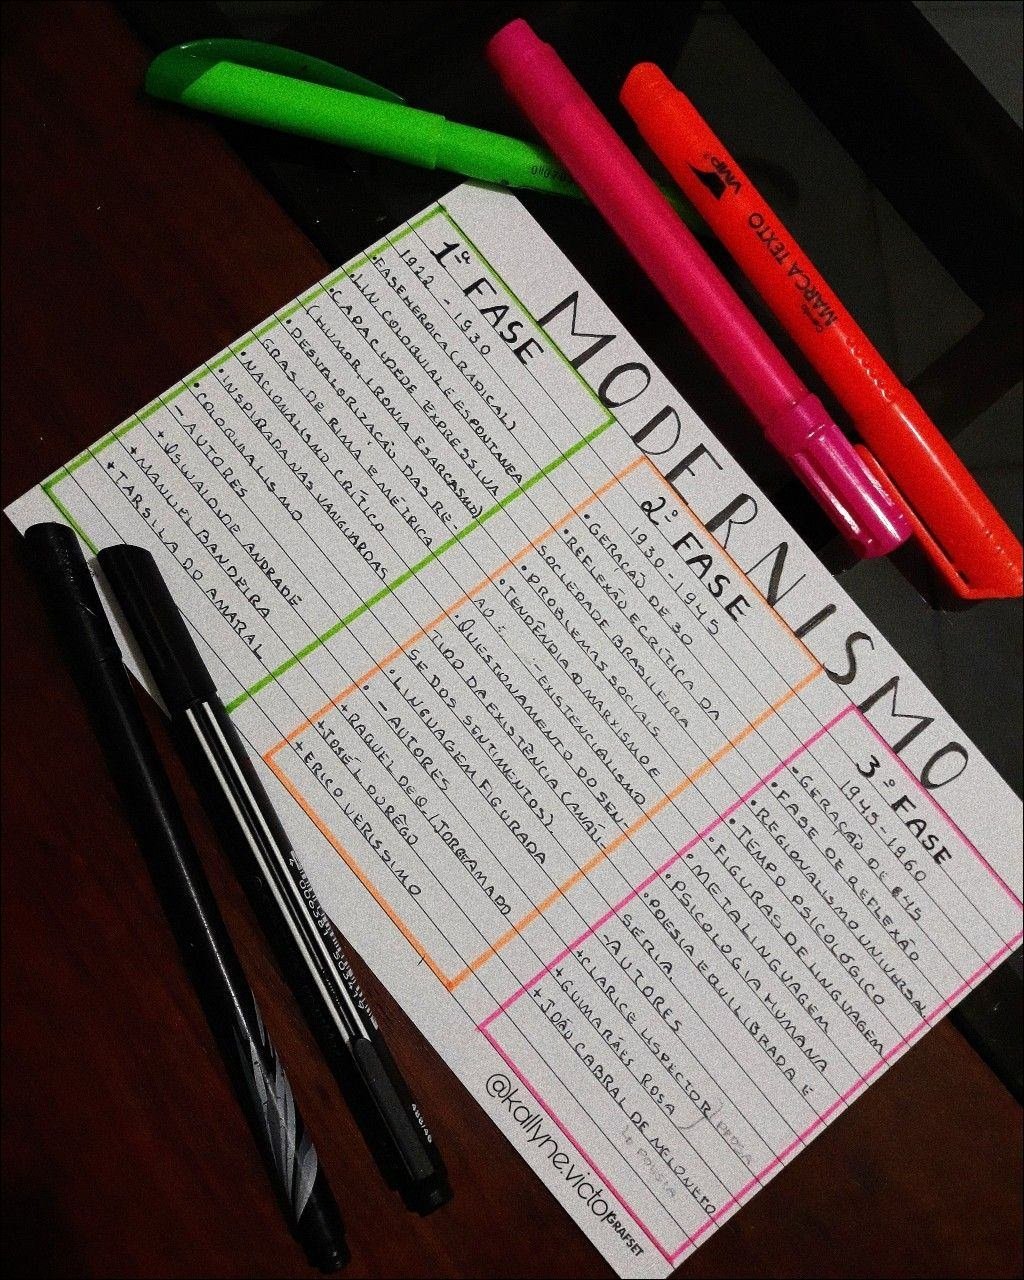 MODERNISMO
1ª FASE
1922 - 1930
• FASE HEROICA (RADICAL)
• LIN. COLOQUIAL E ESPONTANEA
• CADA CIDEDE EXPRESSIVA
(HUMOR, IRONIA E SARCASMO)
• DESVALORIZAÇÃO DAS RE-
GRAS, DE RIMA E METRICA
• NACIONALISMO CRÍTICO
• INSPIRADA NAS VANGUARDAS
• COLOQUIALISMO
- AUTORES
+ OSWALD DE ANDRADE
+ MANUEL BANDEIRA
+ TARSILA DO AMARAL
2º FASE
1930 - 1945
• GERAÇÃO DE 30
• REFLEXÃO E CRÍTICA DA
SOCIEDADE BRASILEIRA
• PROBLEMAS SOCIAIS
• TENDÊNCIA O MARXISMO E
AO E EXISTENCIALISMO
• QUESTIONAMENTO DO SEN-
TIDO DA EXISTÊNCIA (ANÁLI-
SE DOS SENTIMENTOS)
• LINGUAGEM FIGURADA
• - AUTORES
+ RAQUEL DE Q. / JORGE AMADO
+ JOSÉ L DO RÊGO
+ ERICO VERISSIMO
3º FASE
1945 - 1960
- GERAÇÃO DE 45
• FASE DE REFLEXÃO
• REGIONALISMO UNIVERSAL
• TEMPO PSICOLÓGICO
• FIGURAS DE LINGUAGEM
• METALINGUAGEM
• PSICOLOGIA HUMANA
• POESIA EQUILIBRADA E
SERIA
- AUTORES
+ CLARICE LISPECTOR
+ GUIMARÃES ROSA } PROSA
+ JOÃO CABRAL DE MELO NETO
↳ POESIA
@kallyne.victor
GRAFSET
MARCA TEXTO
VMP